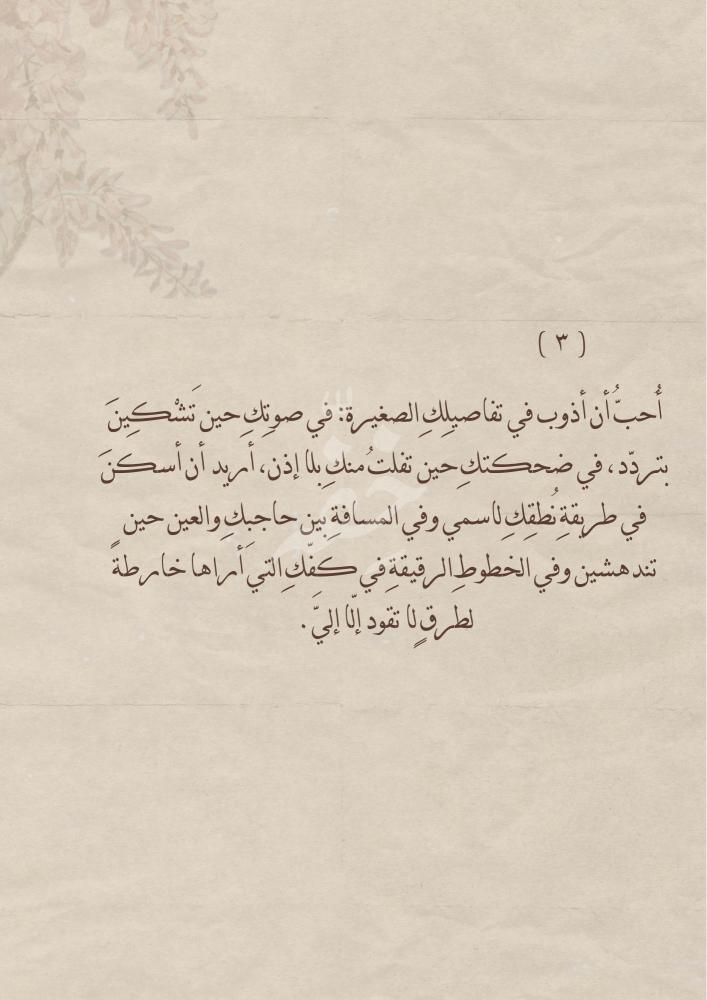 ( ٣ )
أُحبُّ أن أذوب في تفاصيلِكِ الصغيرة: في صوتِكِ حين تَشْكِينَ
بتردّد، في ضحكتكِ حين تفلتُ منكِ بلا إذن، أريد أن أسكنَ
في طريقةِ نُطقِكِ لاسمي وفي المسافةِ بين حاجبكِ والعين حين
تندهشين وفي الخطوطِ الرقيقةِ في كفّكِ التي أراها خارطةً
لطرقٍ لا تقود إلّا إليَّ.